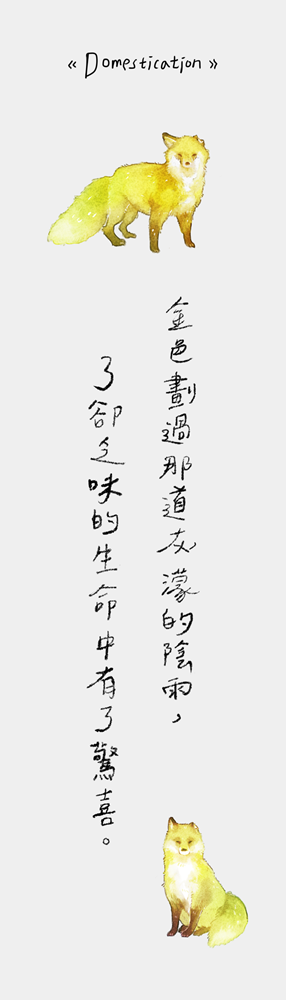 « Domestication »
金色劃過那道灰濛的陰雨，
了卻乏味的生命中有了驚喜。